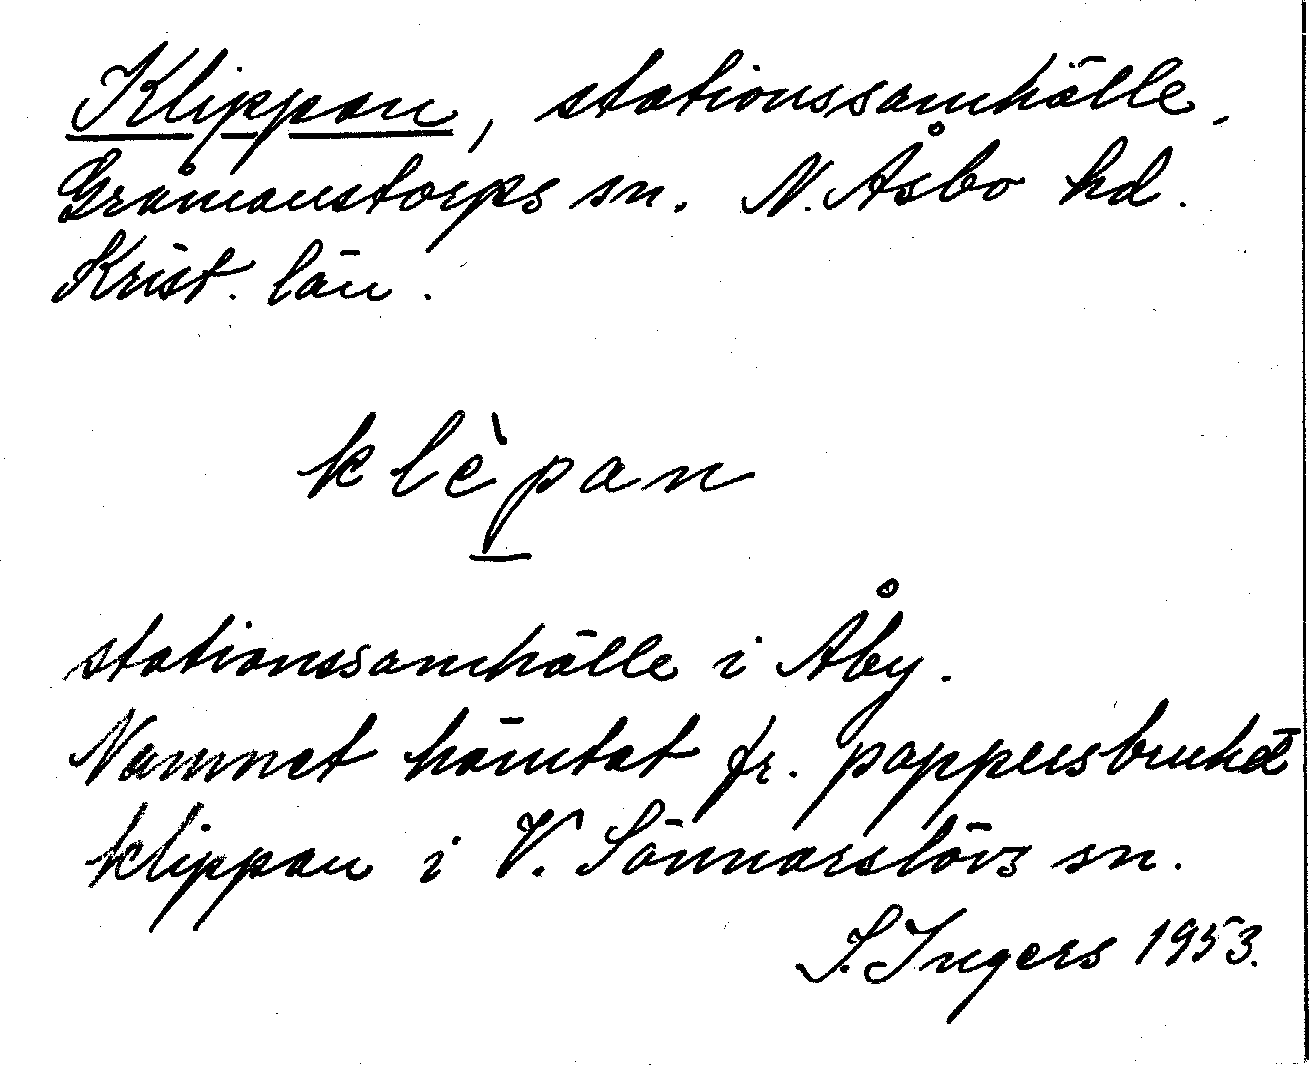 Klippan, stationssamhälle.
Gråmanstorps sn. N. Åsbo hd.
Krist. län.
klèpan
stationssamhälle i Åby.
Namnet hämtat fr. pappersbruket
klippan i V. Sönnarslövs sn.
I. Ingers 1953.